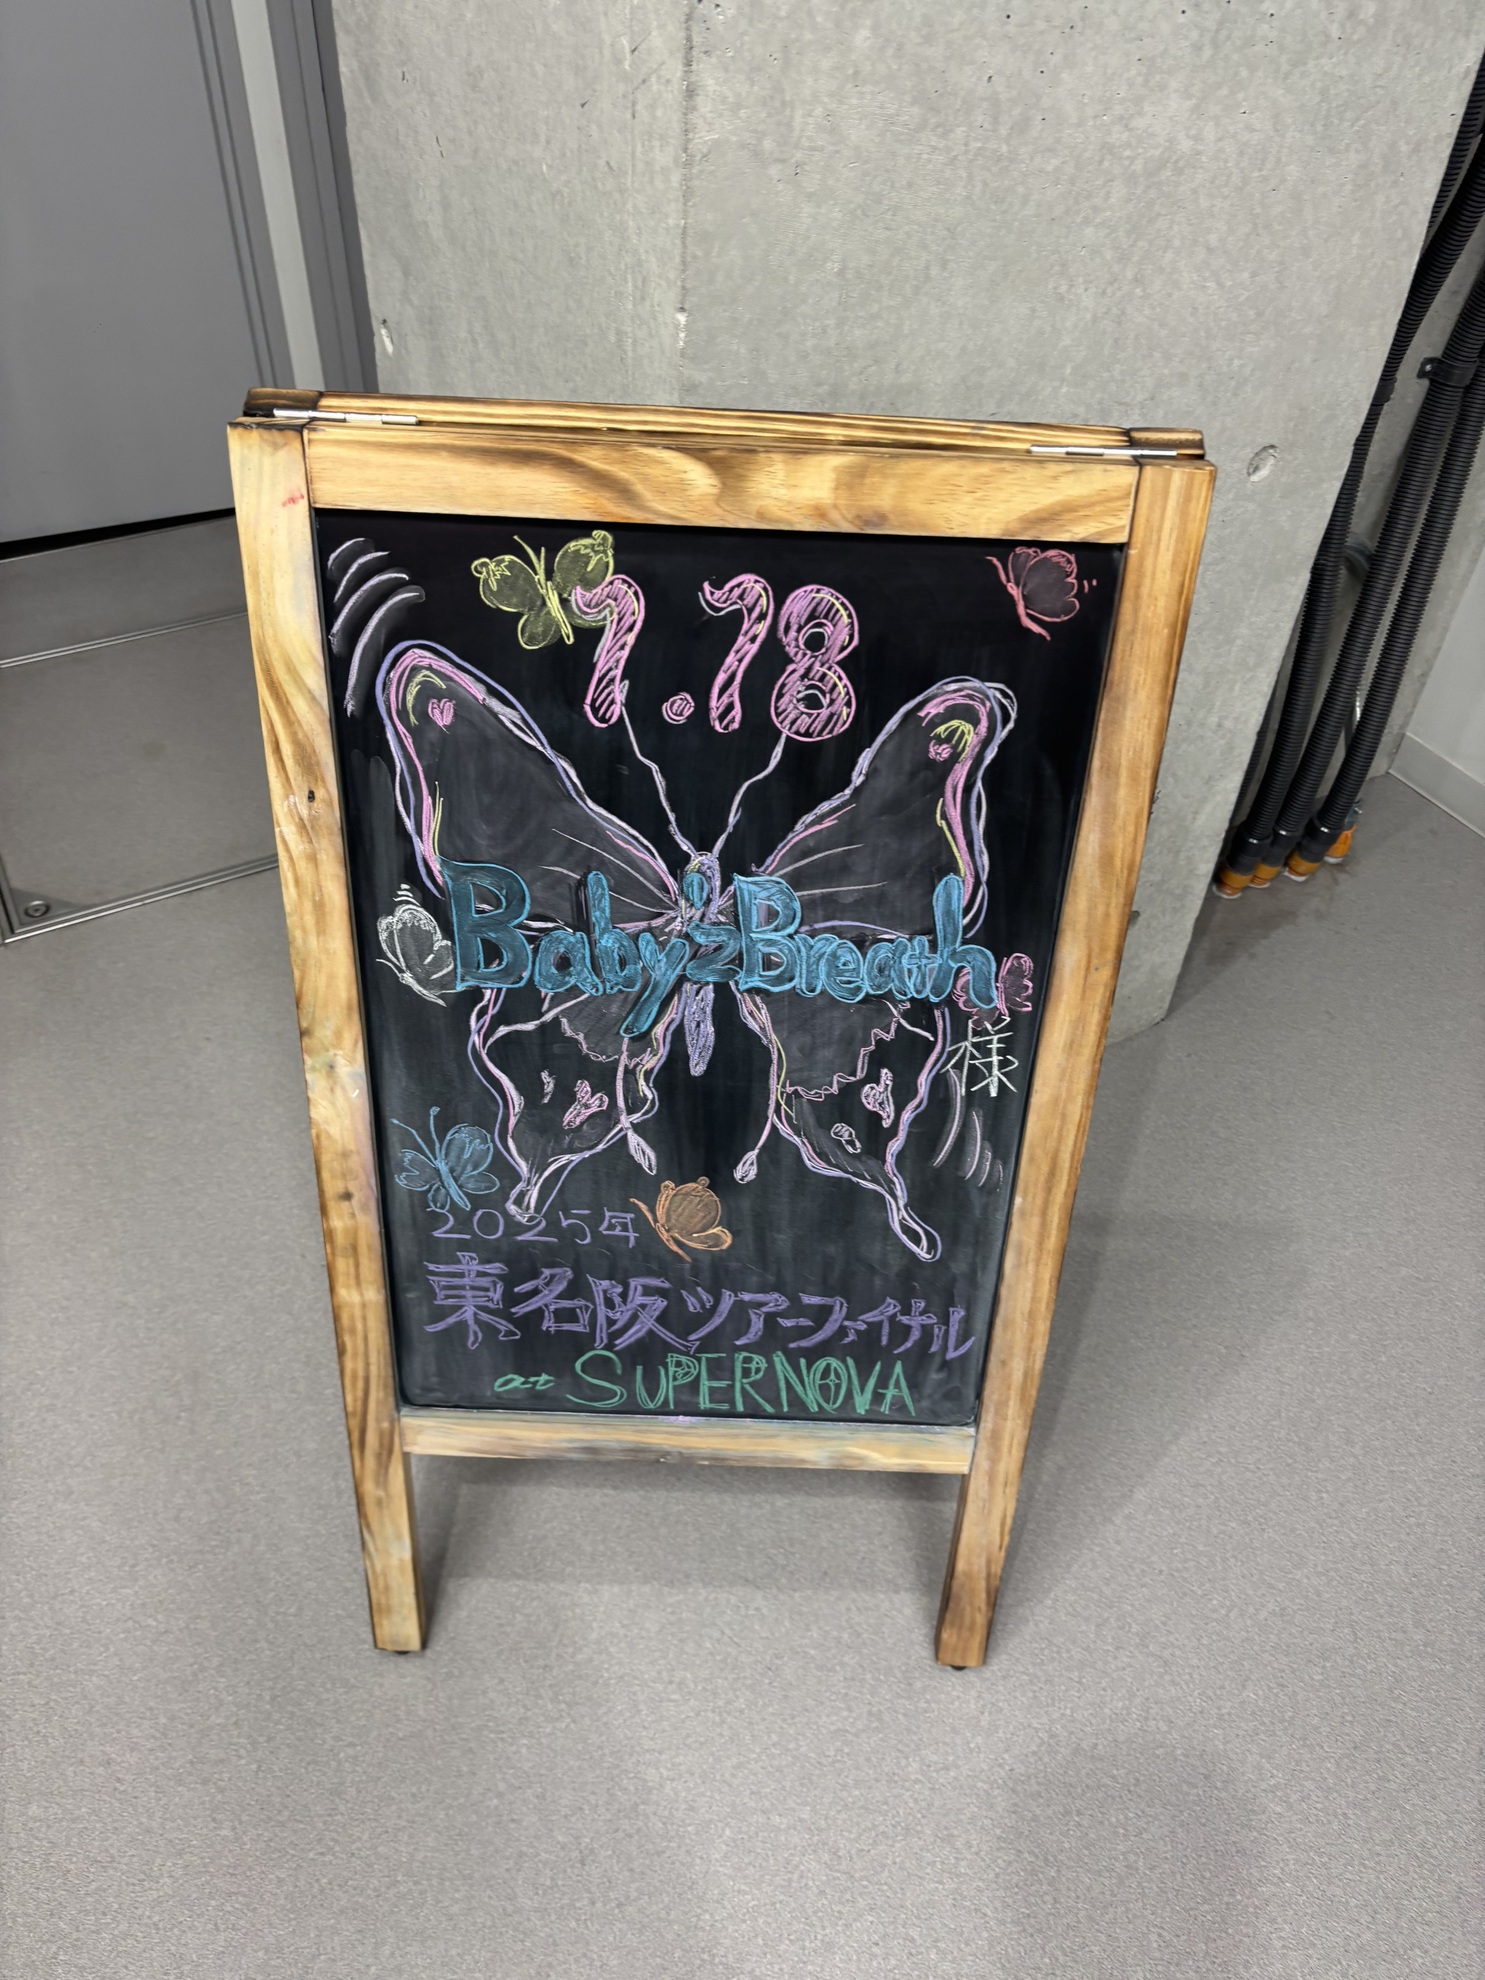 1.18
Baby'z Breath
様
2025年
東名阪ツアーファイナル
at SUPERNOVA